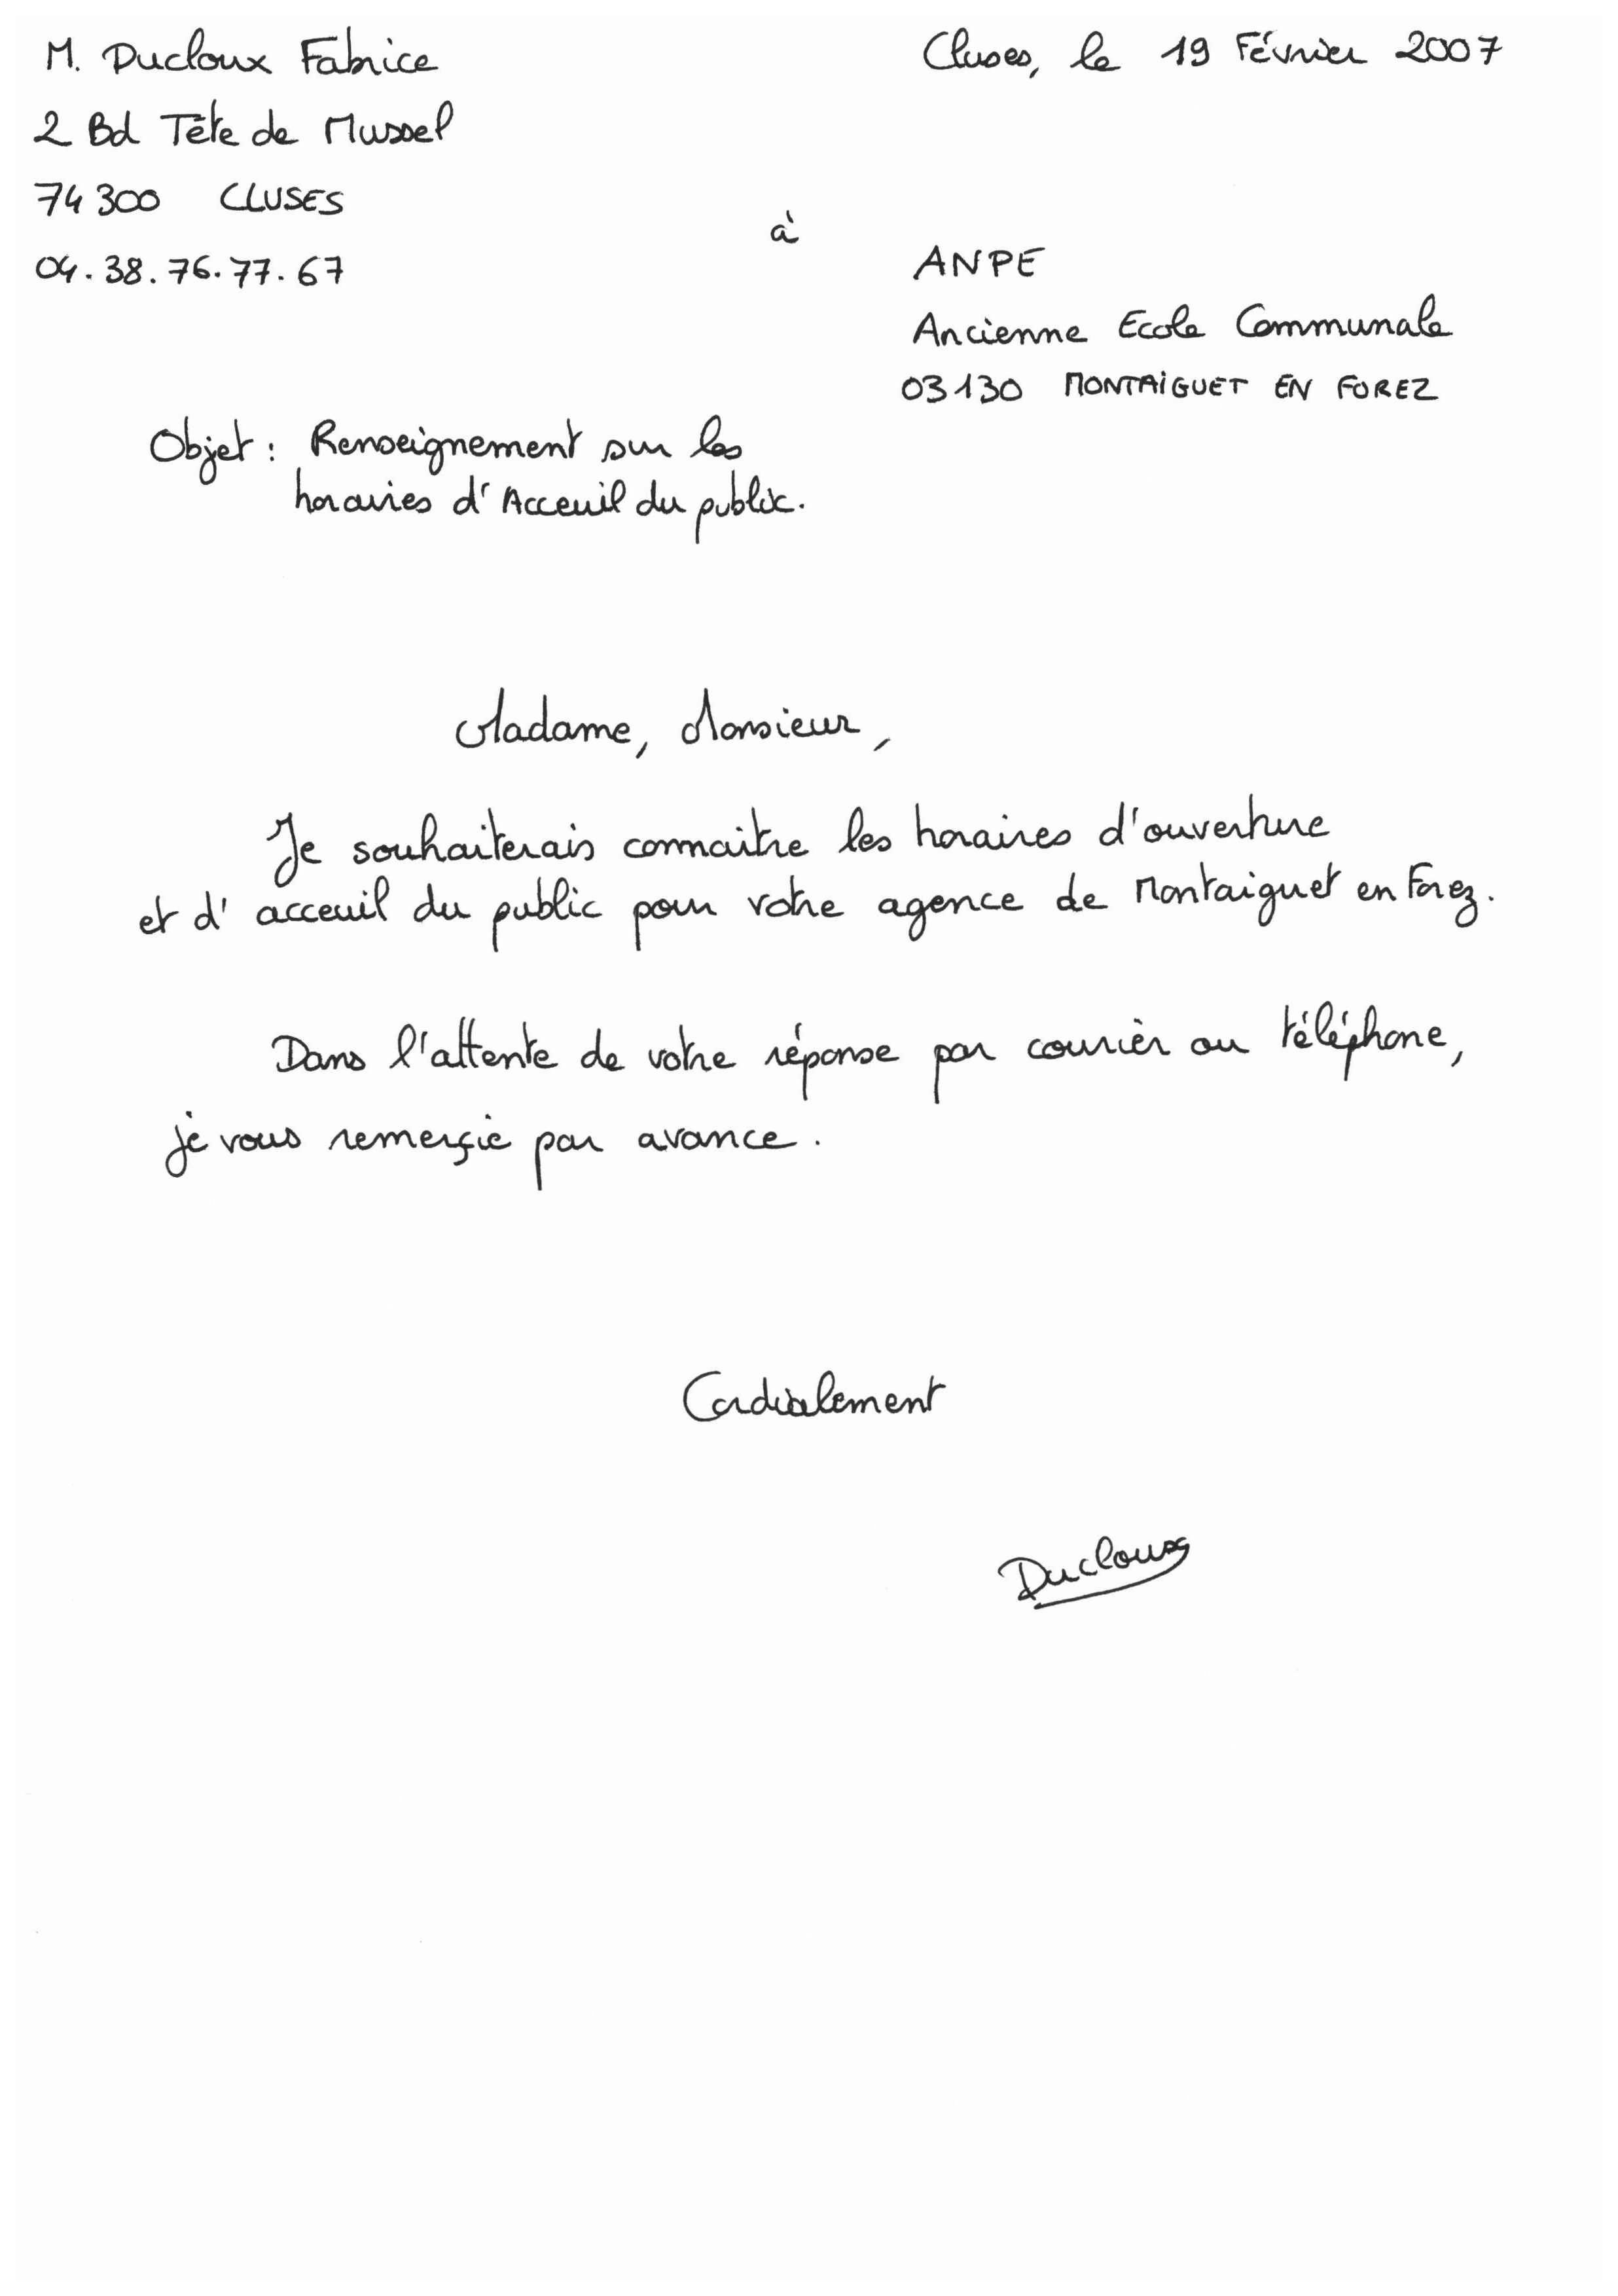 M. Ducloux Fabrice
2 Bd Tête de Mussel
74 300 CLUSES
04.38.76.77.67
Cluses, le 19 Février 2007
à
ANPE
Ancienne Ecole Communale
03130 MONTAIGUET EN FOREZ
Objet : Renseignement sur les
horaires d'Acceuil du public.
Madame, Monsieur,
Je souhaiterais connaitre les horaires d'ouverture
et d' acceuil du public pour votre agence de Montaiguet en Forez.
Dans l'attente de votre réponse par courrier ou téléphone,
je vous remerçie par avance.
Cordialement
Ducloux